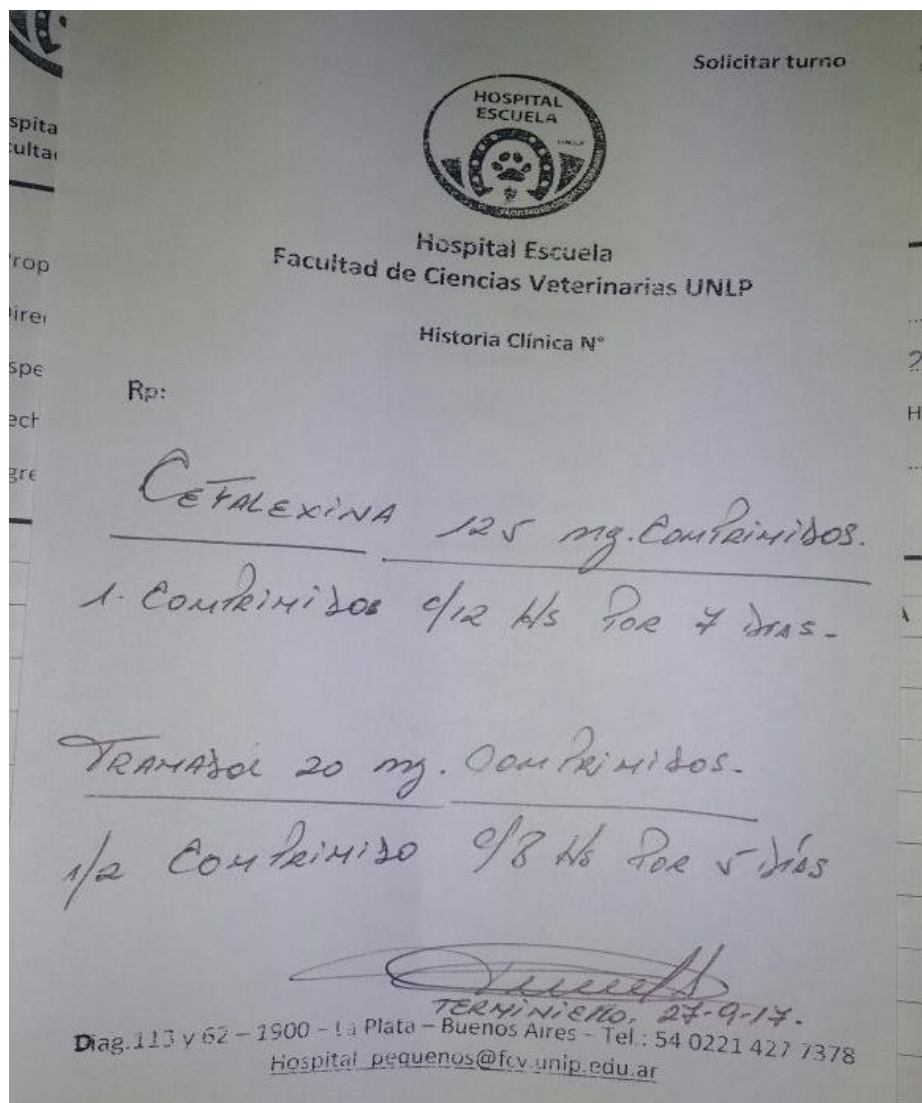 Solicitar turno
HOSPITAL
ESCUELA
UNLP
spita
ultad
Hospital Escuela
Facultad de Ciencias Veterinarias UNLP
Historia Clínica N°
rop
irec
spe
ech
gre
Rp:
CEFALEXINA 125 mg. COMPRIMIDOS.
1. COMPRIMIDOS c/12 Hs POR 7 DIAS-
TRAMADOL 20 mg. COMPRIMIDOS-
1/2 COMPRIMIDO c/8 Hs POR 5 DÍAS
TERMINIELLO. 27-9-17.
Diag.113 y 62 – 1900 – La Plata – Buenos Aires – Tel.: 54 0221 427 7378
Hospital_pequenos@fcv.unlp.edu.ar